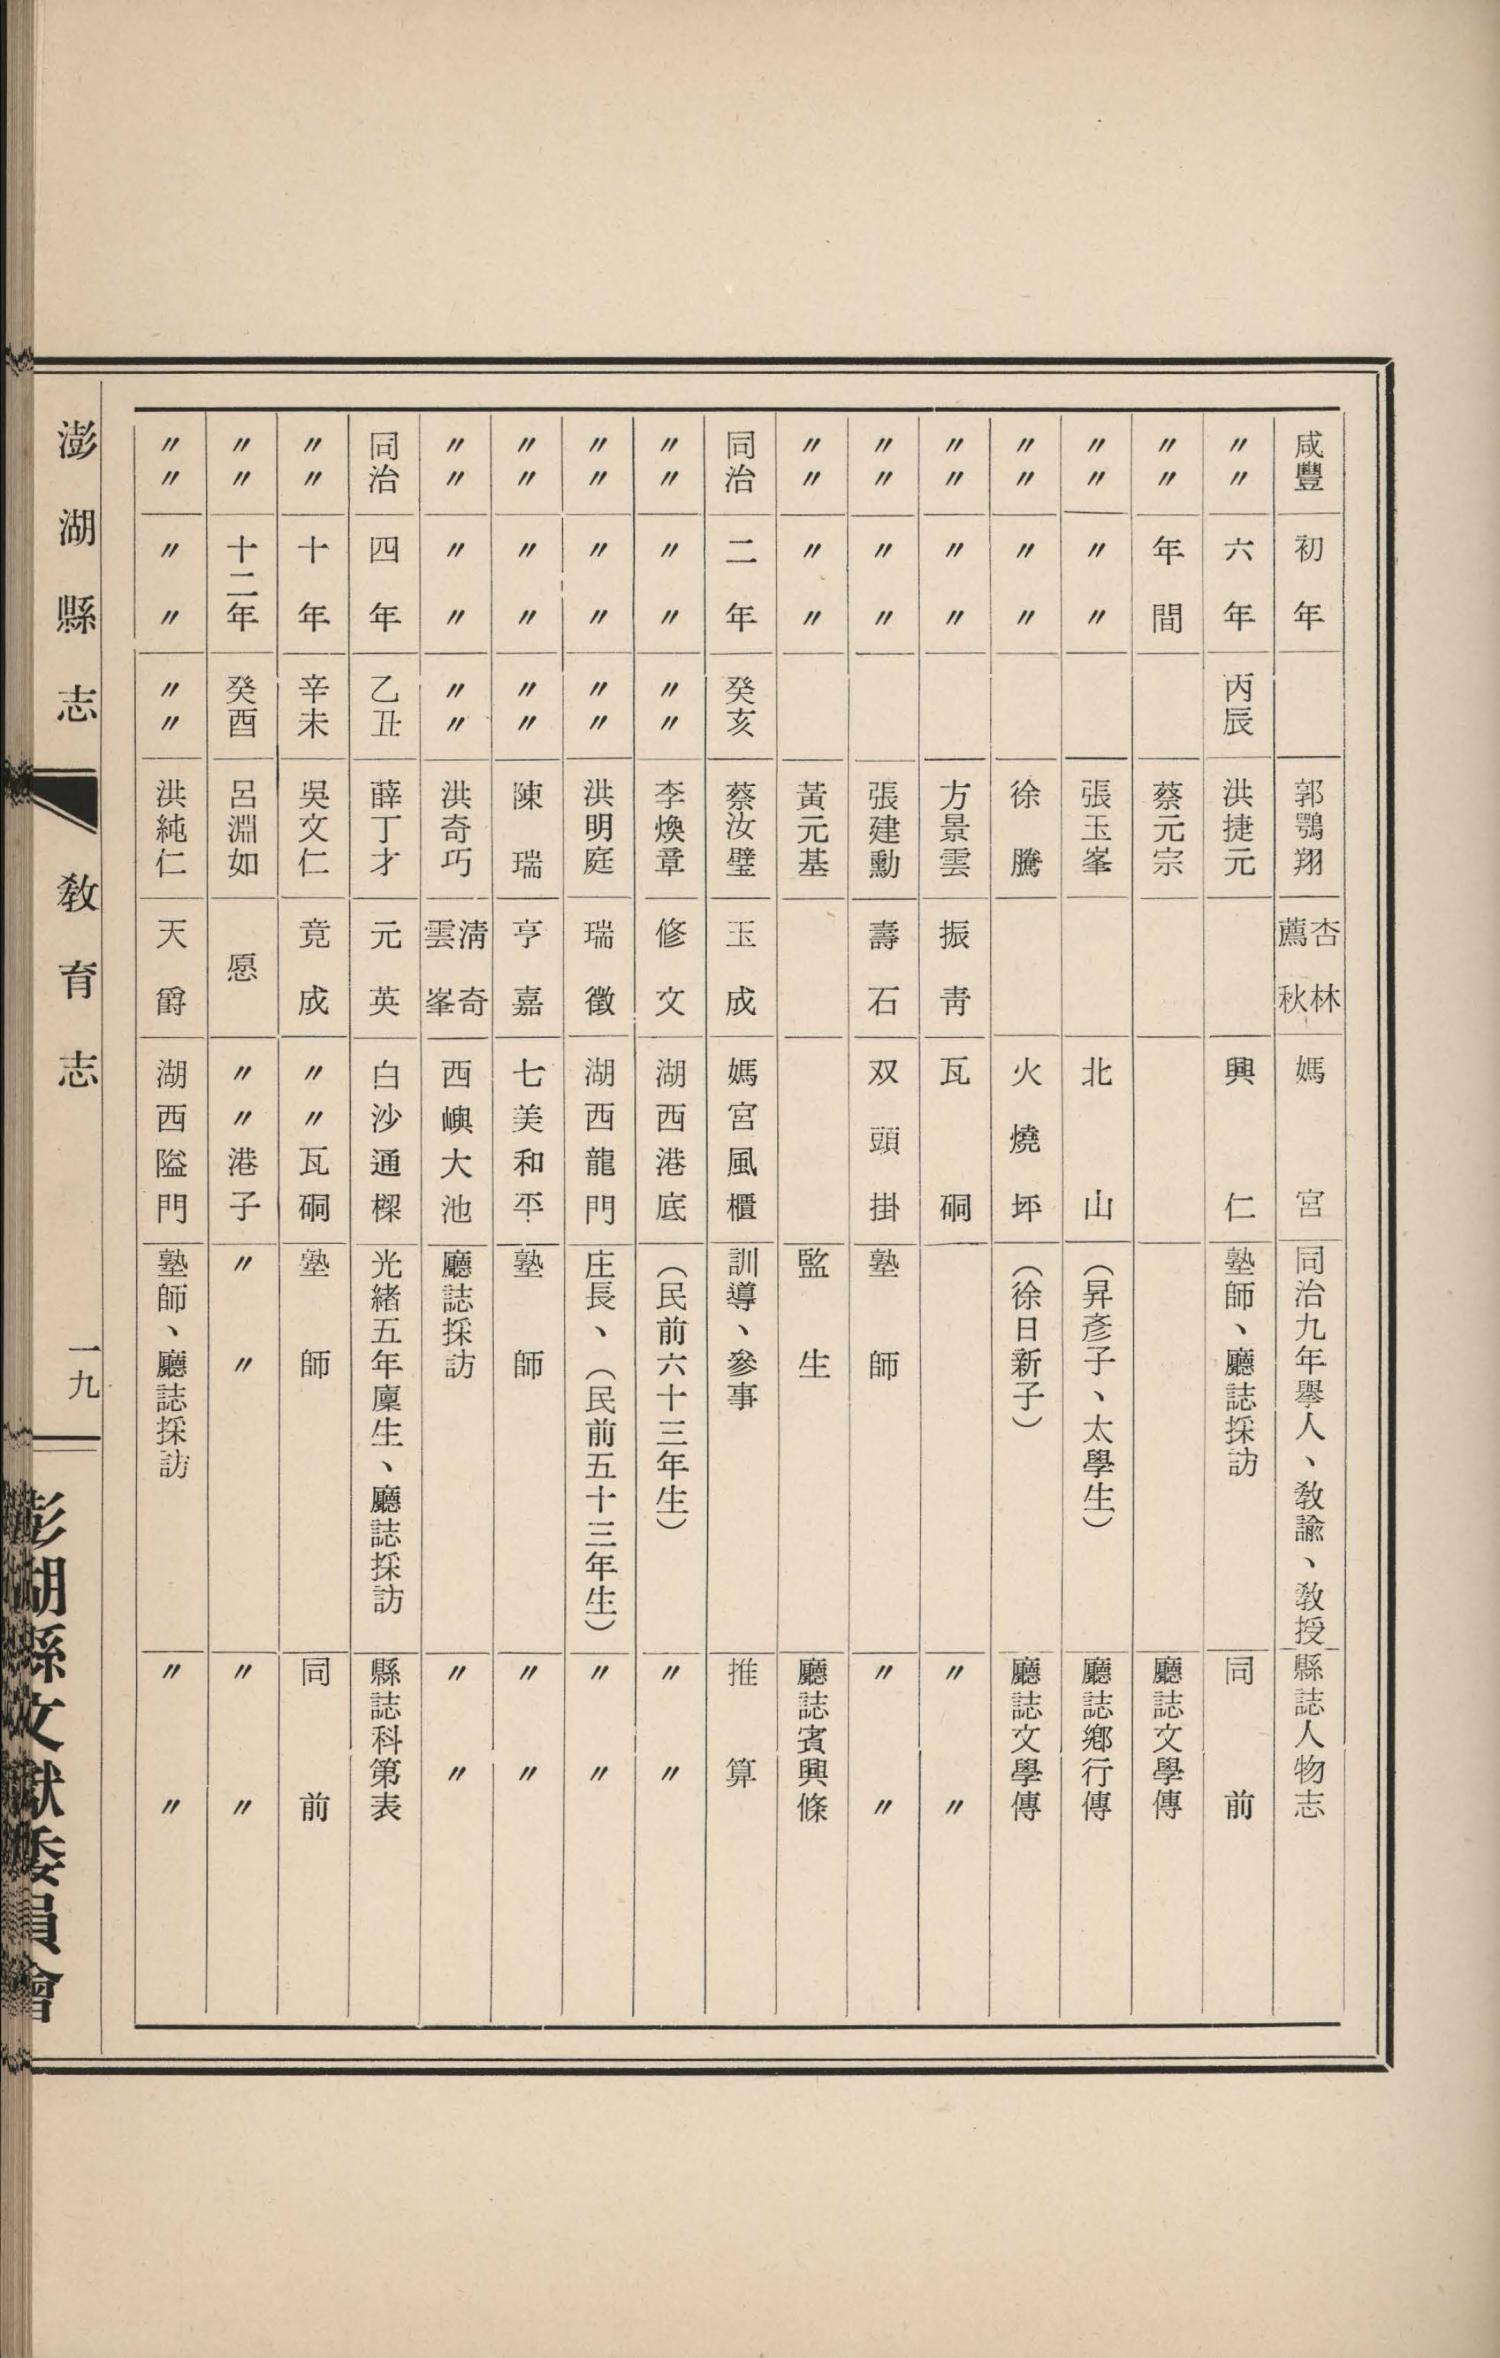 咸豐 初年 郭鶚翔 杏林 薦秋 媽宮 同治九年舉人、教諭、教授 縣誌人物志
〃〃 六年 丙辰 洪捷元 興仁 塾師、廳誌採訪 同前
〃〃 年間 蔡元宗 廳誌文學傳
〃〃 〃〃 張玉峯 北山 (昇彥子、太學生) 廳誌鄉行傳
〃〃 〃〃 徐騰 火燒坪 (徐日新子) 廳誌文學傳
〃〃 〃〃 方景雲 振靑 瓦硐 〃〃
〃〃 〃〃 張建勳 壽石 双頭掛 塾師 〃〃
〃〃 〃〃 黃元基 監生 廳誌賓興條
同治 二年 癸亥 蔡汝璧 玉成 媽宮風櫃 訓導、參事 推算
〃〃 〃〃 〃〃 李煥章 修文 湖西港底 (民前六十三年生) 〃〃
〃〃 〃〃 〃〃 洪明庭 瑞徵 湖西龍門 庄長、(民前五十三年生) 〃〃
〃〃 〃〃 〃〃 陳瑞 亨嘉 七美和平 塾師 〃〃
〃〃 〃〃 〃〃 洪奇巧 淸奇 雲峯 西嶼大池 廳誌採訪 〃〃
同治 四年 乙丑 薛丁才 元英 白沙通樑 光緒五年廩生、廳誌採訪 縣誌科第表
〃〃 十年 辛未 吳文仁 竟成 〃〃瓦硐 塾師 同前
〃〃 十二年 癸酉 呂淵如 愿 〃〃港子 〃〃 〃〃
〃〃 〃〃 〃〃 洪純仁 天爵 湖西隘門 塾師、廳誌採訪 〃〃
澎湖縣志 教育志 一九 澎湖縣文獻委員會